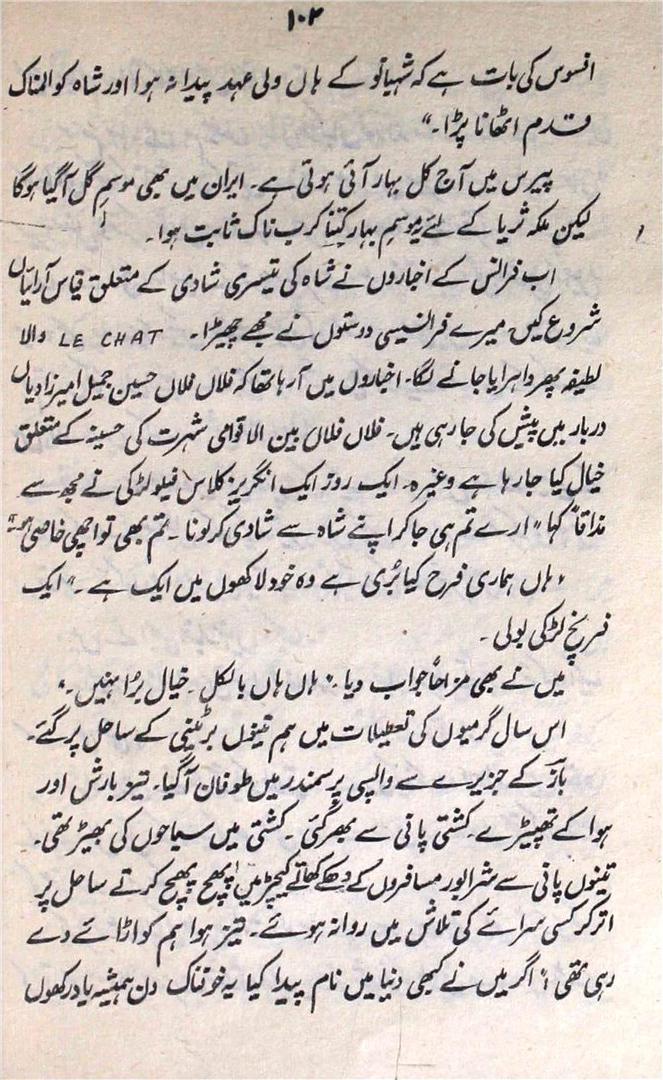 ۱۰۲
افسوس کی بات ہے کہ شہبانو کے ہاں ولی عہد پیدا نہ ہوا اور شاہ کو المناک
قدم اٹھانا پڑا۔“
پیرس میں آج کل بہار آئی ہوتی ہے۔ ایران میں بھی موسم گل آگیا ہوگا
لیکن ملکہ ثریا کے لئے یہ موسم بہار کتنا کرب ناک ثابت ہوا۔
اب فرانس کے اخباروں نے شاہ کی تیسری شادی کے متعلق قیاس آرائیاں
شروع کیں۔ میرے فرانسیسی دوستوں نے مجھے چھیڑا۔ LE CHAT والا
لطیفہ پھر دہرایا جانے لگا۔ اخباروں میں آرہا تھا کہ فلاں فلاں حسین جمیل امیرزادیاں
دربار میں پیش کی جارہی ہیں۔ فلاں فلاں بین الاقوامی شہرت کی حسینہ کے متعلق
خیال کیا جارہا ہے وغیرہ۔ ایک روز ایک انگریز کلاس فیلو لڑکی نے مجھ سے
مذاقاً کہا ”ارے تم ہی جاکر اپنے شاہ سے شادی کرلو نا۔ تم بھی تو اچھی خاصی ہو۔“
”ہاں ہماری فرح کیا بُری ہے وہ خود لاکھوں میں ایک ہے۔“ ایک
فرنچ لڑکی بولی۔
میں نے بھی مزاحاً جواب دیا۔ ”ہاں ہاں بالکل۔ خیال بُرا نہیں۔“
اس سال گرمیوں کی تعطیلات میں ہم تینوں برٹینی کے ساحل پر گئے۔
باز کے جزیرے سے واپسی پر سمندر میں طوفان آگیا۔ تیز بارش اور
ہوا کے تھپیڑے۔ کشتی پانی سے بھر گئی۔ کشتی میں سیاحوں کی بھیڑ تھی۔
تینوں پانی سے شرابور مسافروں کے دھکے کھاتے کیچڑ میں پچ پچ کرتے ساحل پر
اتر کر کسی سرائے کی تلاش میں روانہ ہوئے۔ تیز ہوا ہم کو اڑائے دے
رہی تھی! ”اگر میں نے کبھی دنیا میں نام پیدا کیا یہ خوفناک دن ہمیشہ یاد رکھوں